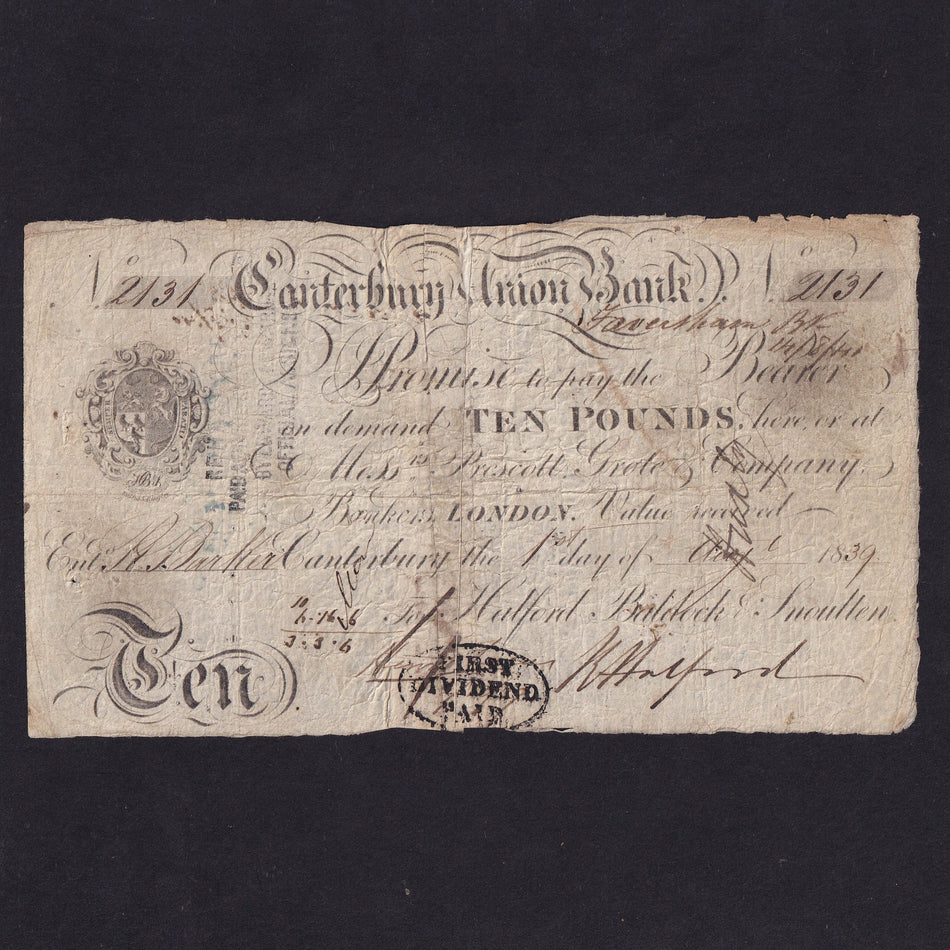 No 2131 Canterbury Union Bank. No 2131
Faversham Bk
I Promise to pay the Bearer
on demand TEN POUNDS, here, or at
Messrs Prescott, Grote & Company,
Bankers, LONDON. Value received
Entd Canterbury the 1st day of 1839
For Halford Baldock & Snoulten
10
3.3.6
Ten
FIRST
DIVIDEND
PAID